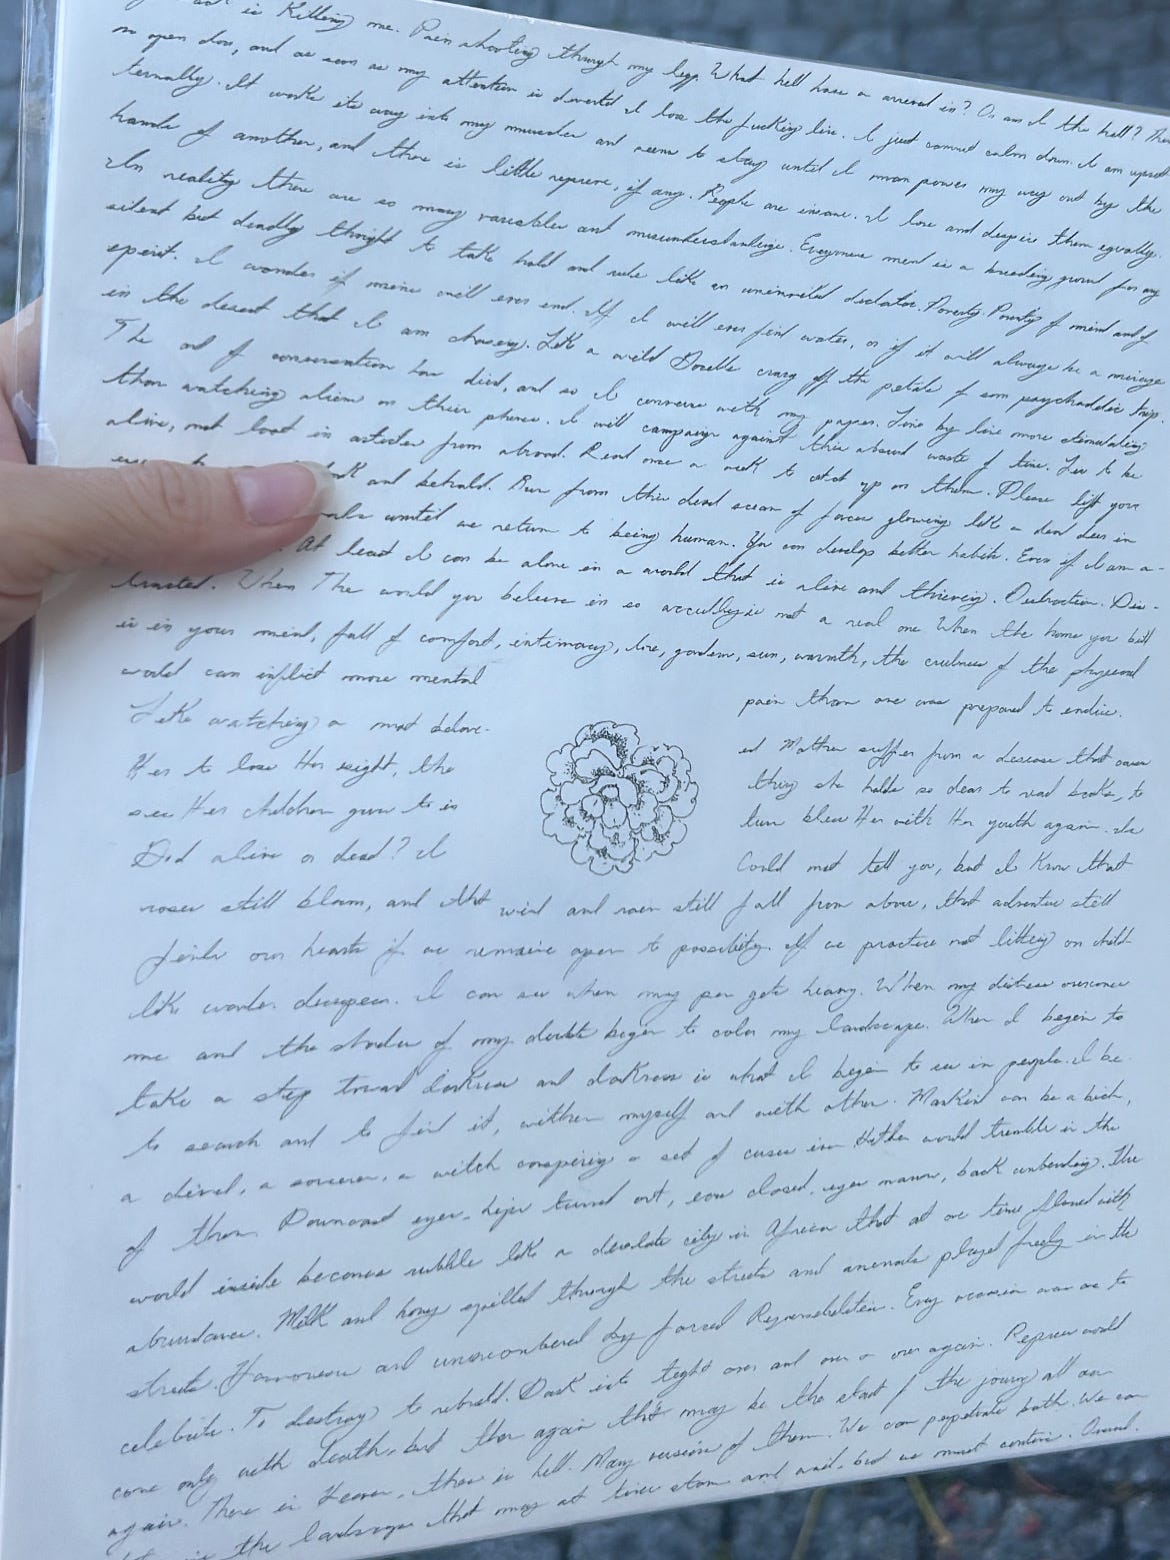 is Killing me. Pain shooting through my legs. What hell have I arrived in? Or am I the hell? There
an open door, and as soon as my attention is diverted I lose the fucking line. I just cannot calm down. I am upset
ternally. It works its way into my muscles and seems to stay until I man power my way out by the
hands of another, and there is little reprieve, if any. People are insane. I love and despise them equally.
In reality there are so many variables and misunderstandings. Everymans mind is a breeding ground for any
silent but deadly thought to take hold and rule like an uninvited dictator. Poverty. Poverty of mind and of
spirit. I wonder if mine will ever end. If I will ever find water, or if it will always be a mirage
in the desert that I am chasing. Like a wild Gazelle crazy off the petals of some psychadelic trip.
The art of conversation has died, and so I converse with my paper. Line by line more stimulating
than watching aliens on their phones. I will campaign against this absurd waste of time. Live to be
alive, not lost in articles from abroad. Read once a week to catch up on them. Please lift your
and behold. Run from this dead ocean of faces glowing like a dead deer in
until we return to being human. You can develop better habits. Even if I am a-
At least I can be alone in a world that is alive and thriving. Distraction. Dis-
tracted. When The world you believe in so is not a real one. When the home you built
is in your mind, full of comfort, intimacy, love, gardens, sun, warmth, the cruelness of the physical
world can inflict more mental pain than one was prepared to endure.
Like watching a most belov- ed Mother suffer from a disease that causes
Her to lose Her sight, the thing she holds so dear to read books, to
see Her children grow to in turn bless Her with Her youth again. Is
God alive or dead? I Could not tell you, but I Know that
roses still bloom, and that wind and rain still fall from above, that adventure still
finds our hearts if we remain open to possibility. If we practice not letting our child
like wonder dissapear. I can see when my pen gets heavy. When my distress overcomes
me and the shades of my doubts began to color my landscape. When I begin to
take a step toward darkness and darkness is what I began to see in people. I be
to search and to find it, within myself and with others. Mankind can be a bich,
a devil, a sorcerer, a witch conspiring a set of curses even Hitler would tremble in the
of them. Downcast eyes, hips turned out, ears closed, eyes narrow, back unbending. The
world inside becomes rubble like a desolate city in Africa that at one time flowed with
abundance. Milk and honey spilled through the streets and animals played freely in the
streets. Harmonious and unencumbered by forced Responsibilities. Every occasion was one to
celebrate. To destroy to rebuild. Dark into light over and over a over again. Reprieve would
come only with death, but then again that may be the start of the journey all over
again. There is Heaven, there is hell. Many versions of them. We can perpetuate both. We can
the landscape that may at times storm and wail, but we must continue. Onward.